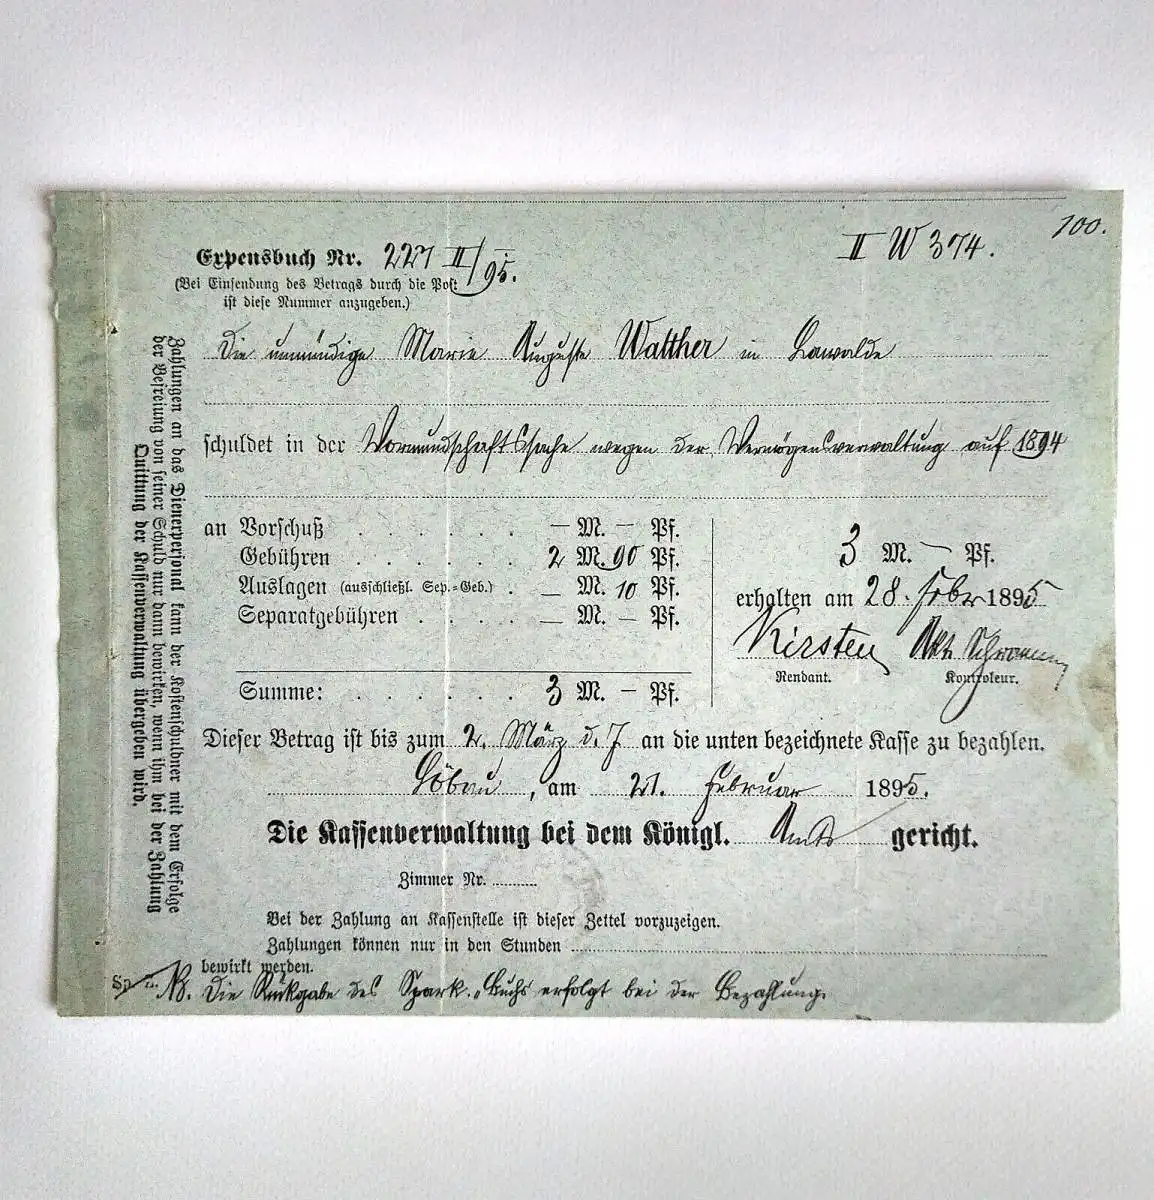 100.
Expensbuch Nr. 227 II/95.
II W 374.
(Bei Einsendung des Betrags durch die Post
ist diese Nummer anzugeben.)
Die unmündige Marie Auguste Walther in Lawalde
schuldet in der Vormundschaftssache wegen der Vermögensverwaltung auf 1894
an Vorschuß . . . . . . — M. — Pf.
Gebühren . . . . . . 2 M. 90 Pf.
Auslagen (ausschließl. Sep.=Geb.) . — M. 10 Pf.
Separatgebühren . . . . — M. — Pf.
Summe: . . . . . . 3 M. — Pf.
3 M. — Pf.
erhalten am 28. Febr 1895
Kirsten
Rendant. Kontroleur.
Dieser Betrag ist bis zum 2. März d. J. an die unten bezeichnete Kasse zu bezahlen.
Löbau, am 21. Februar 1895.
Die Kassenverwaltung bei dem Königl. Amts gericht.
Zimmer Nr.
Bei der Zahlung an Kassenstelle ist dieser Zettel vorzuzeigen.
Zahlungen können nur in den Stunden
bewirkt werden.
NB. Die Rückgabe des Spark.=Buchs erfolgt bei der Bezahlung.
Zahlungen an das Dienerpersonal kann der Kostenschuldner mit dem Erfolge
der Befreiung von seiner Schuld nur dann bewirken, wenn ihm bei der Zahlung
Quittung der Kassenverwaltung übergeben wird.